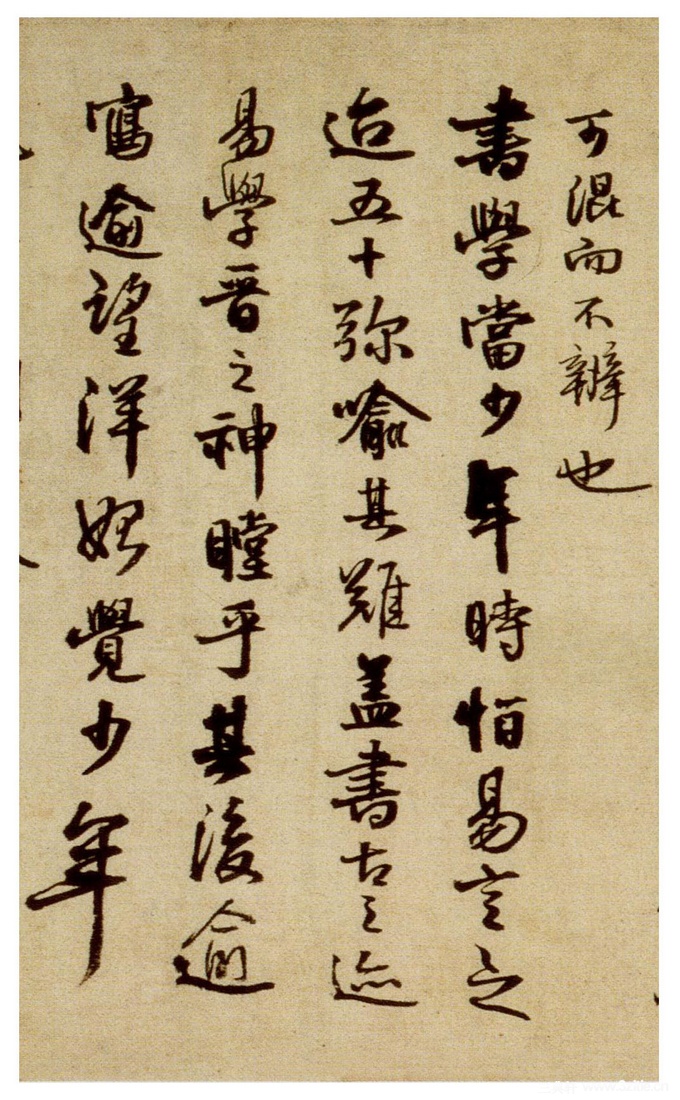 可混而不辨也
書學當少年時怕易言之
迨五十弥喻其難盖書古之迹
易學晋之神瞠乎其後逾
寫逾望洋始覺少年